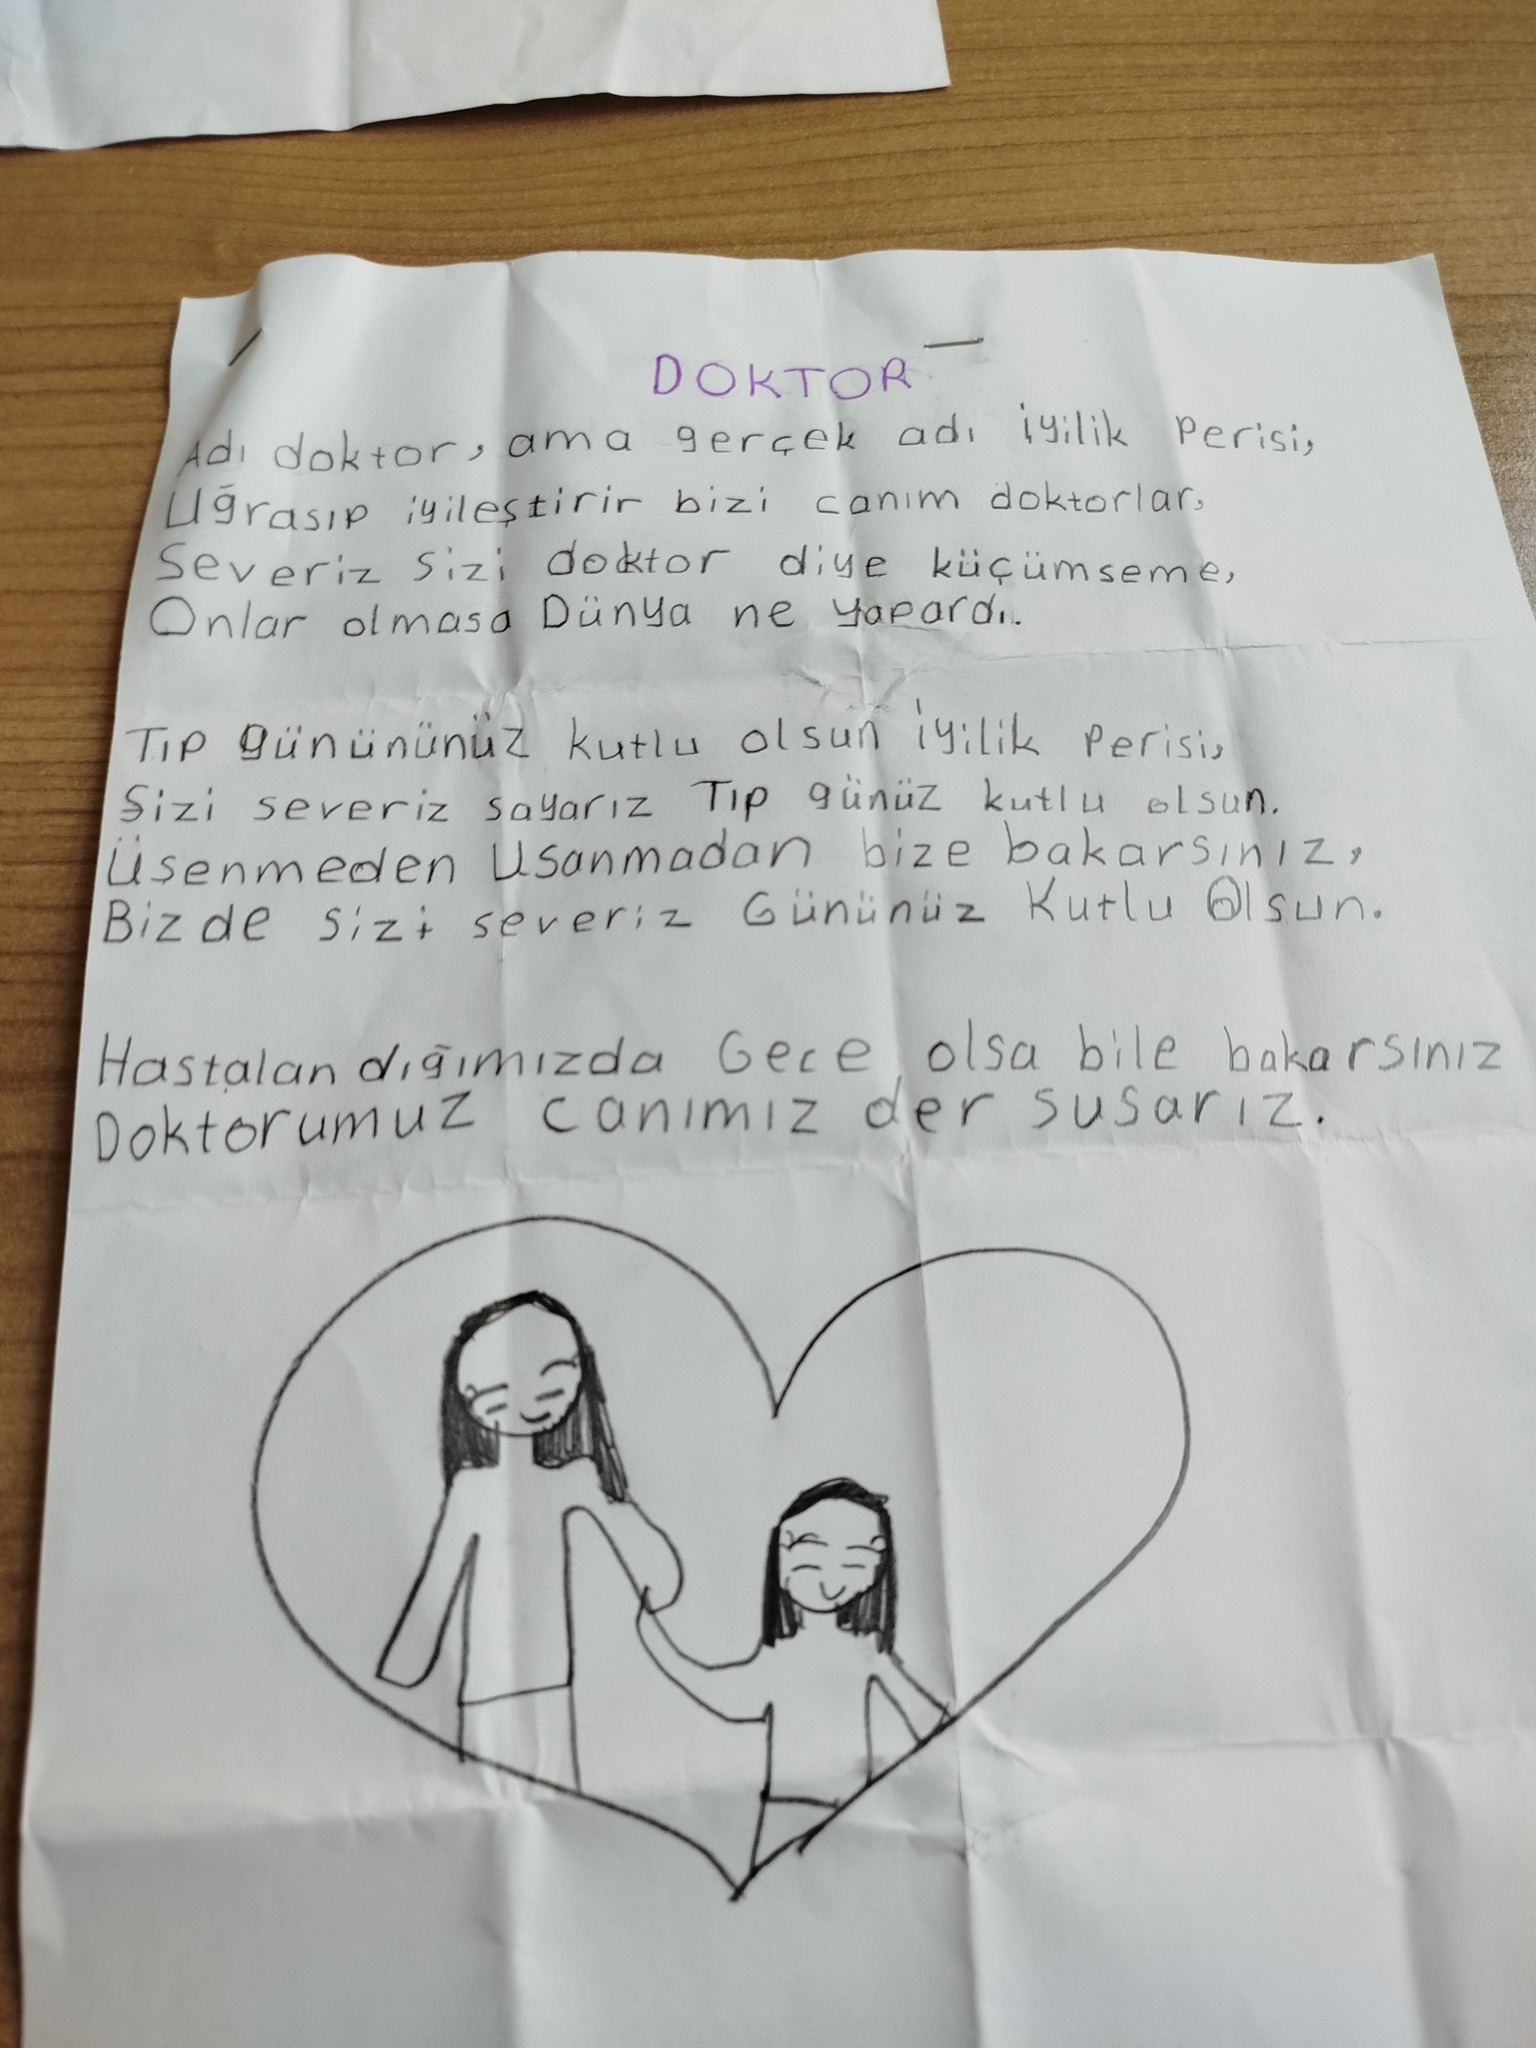 DOKTOR
Adı doktor, ama gerçek adı iyilik Perisi,
Uğrasıp iyileştirir bizi canım doktorlar,
Severiz Sizi doktor diye küçümseme,
Onlar olmasa Dünya ne yapardı.
Tıp günününüz kutlu olsun iyilik Perisi,
Sizi severiz sayarız Tıp günüz kutlu olsun.
Üsenmeden Usanmadan bize bakarsınız,
Bizde sizi severiz Gününüz Kutlu Olsun.
Hastalandığımızda Gece olsa bile bakarsınız
Doktorumuz canımız der susarız.